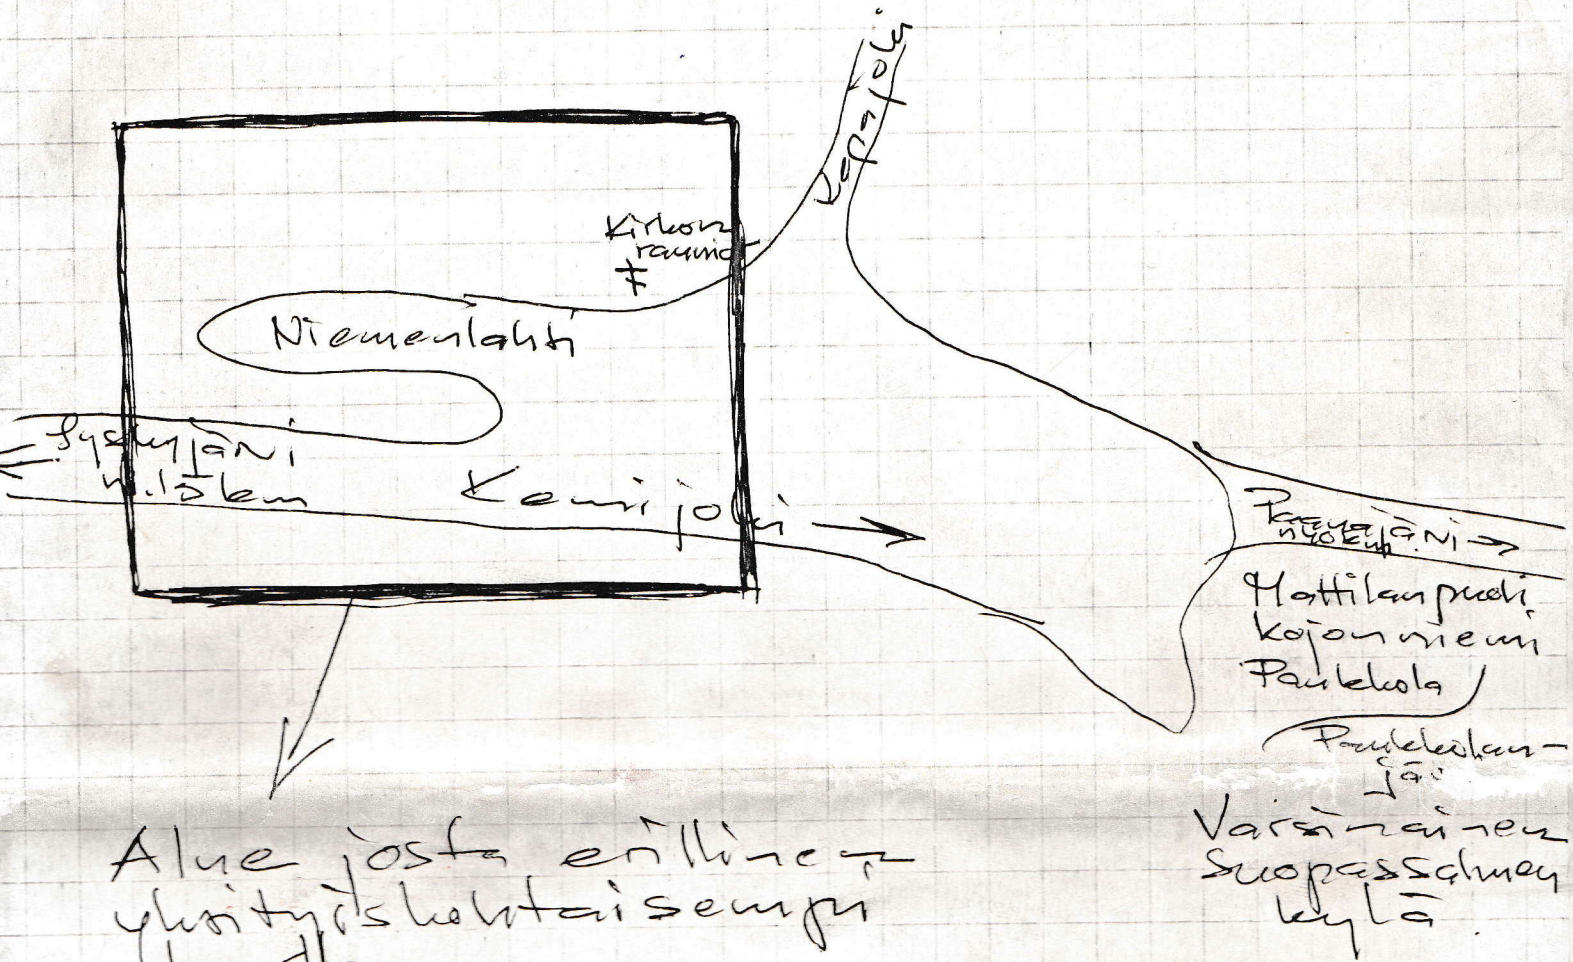 Kepajoki
Kirkon
raunio
Niemenlahti
Syskyjärvi
n. 15 km
Kemijoki
Paanajärvi
n. 40 km
Mattilanpudi
Kojonniemi
Paukkola
Paukkolan-
jär.
Varsinainen
Suopassalmen
kylä.
Alue josta erillinen
yksityiskohtaisempi